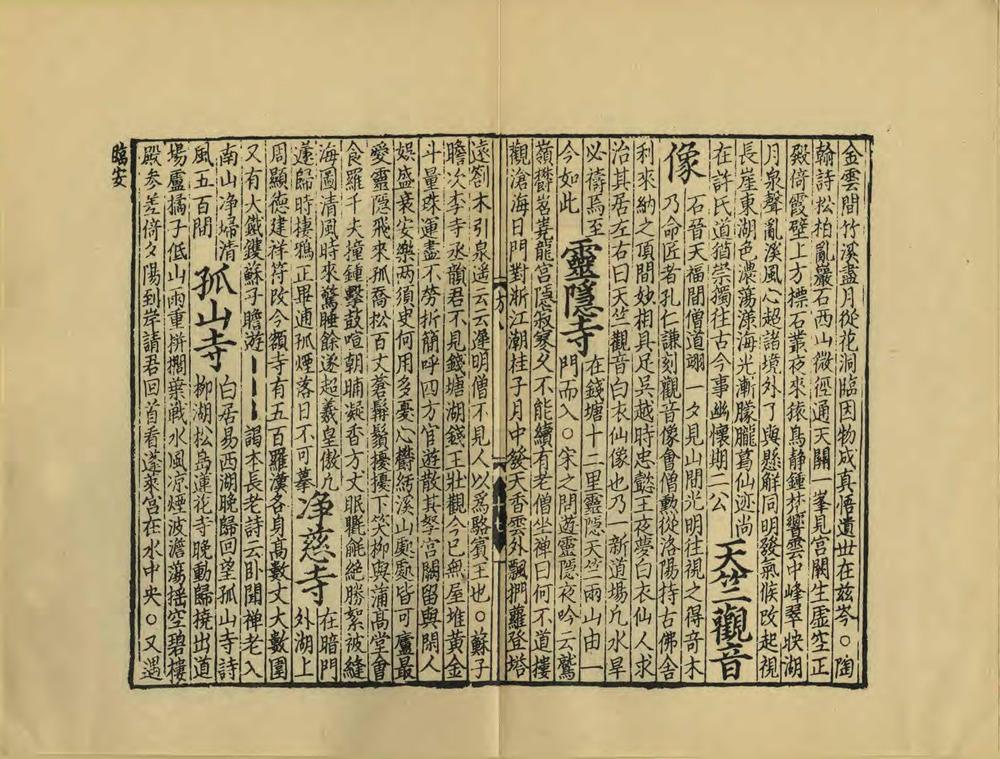 金雲間竹溪盡月從花洞臨因物成真悟遺世在兹岑○陶
翰詩松柏亂巖石西山微徑通天開一峯見宫闕生虛空正
殿倚霞壁上方標石叢夜來猿鳥静鍾梵響雲中峰翠映湖
月泉聲亂溪風心超諸境外了與懸解同明發氣候改起視
長崖東湖色濃蕩漾海光漸朦朧葛仙迹尚
在許氏道猶崇獨往古今事幽懷期二公
天竺觀音
像
石晉天福間僧道翊一夕見山間光明往視之得奇木
乃命匠者孔仁謙刻觀音像會僧勳從洛陽持古佛舍
利來納之頂間妙相具足吳越時忠懿王夜夢白衣仙人求
治其居左右曰天竺觀音白衣仙像也乃一新道場凡水旱
必禱焉至
今如此
靈隱寺
在錢塘十二里靈隱天竺兩山由一
門而入○宋之問遊靈隱夜吟云鷲
嶺鬱岧嶤龍宫隱寂寞久不能續有老僧坐禪曰何不道樓
觀滄海日門對浙江潮桂子月中發天香雲外飄捫蘿登塔
遠刳木引泉遥云云遲明僧不見人以爲駱賓王也○蘇子
瞻次李寺丞韻君不見錢塘湖錢王壯觀今已無屋堆黄金
斗量珠運盡不勞折簡呼四方宦遊散其孥宫闕留與閑人
娱盛衰安樂兩須臾何用多憂心鬱紆溪山處處皆可廬最
愛靈隱飛來孤喬松百丈蒼髯鬚擾擾下笑柳與蒲高堂會
食羅千夫撞鍾擊鼓喧朝晡凝香方丈眠氍毹絶勝絮被縫
海圖清風時來驚睡餘遂超羲皇傲几
蘧歸時棲鴉正畢逋孤煙落日不可摹
净慈寺
在暗門
外湖上
周顯德建祥符改今額寺有五百羅漢各身高數丈大數圍
又有大鐵鑊蘇子瞻遊———謁本長老詩云卧聞禪老入
南山净埽清
風五百間
孤山寺
白居易西湖晚歸回望孤山寺詩
柳湖松島蓮花寺晚動歸橈出道
場盧橘子低山雨重栟櫚葉戰水風凉煙波澹蕩摇空碧樓
殿参差倚夕陽到岸請君回首看蓬萊宫在水中央○又遇
臨安
方
十七